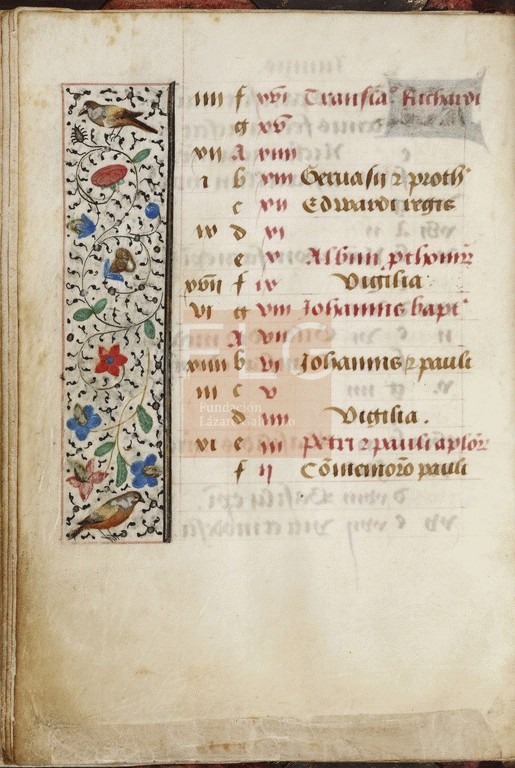 iiii f xvi Transla. Richardi
g xv
xii A xiiii
i b xiii Geruasii ⁊ proth'
c xii Edwardi regis
ix d xi
e x Albini pthomr̄
xvii f ix Vigilia
vi g viii Johannis bapt'
A vii
xiiii b vi Johannis ⁊ pauli
iii c v
d iiii Vigilia.
xi e iii Petri ⁊ pauli aplōr
f ii Cōmemoro pauli
FLC
Fundación
Lázaro Galdiano